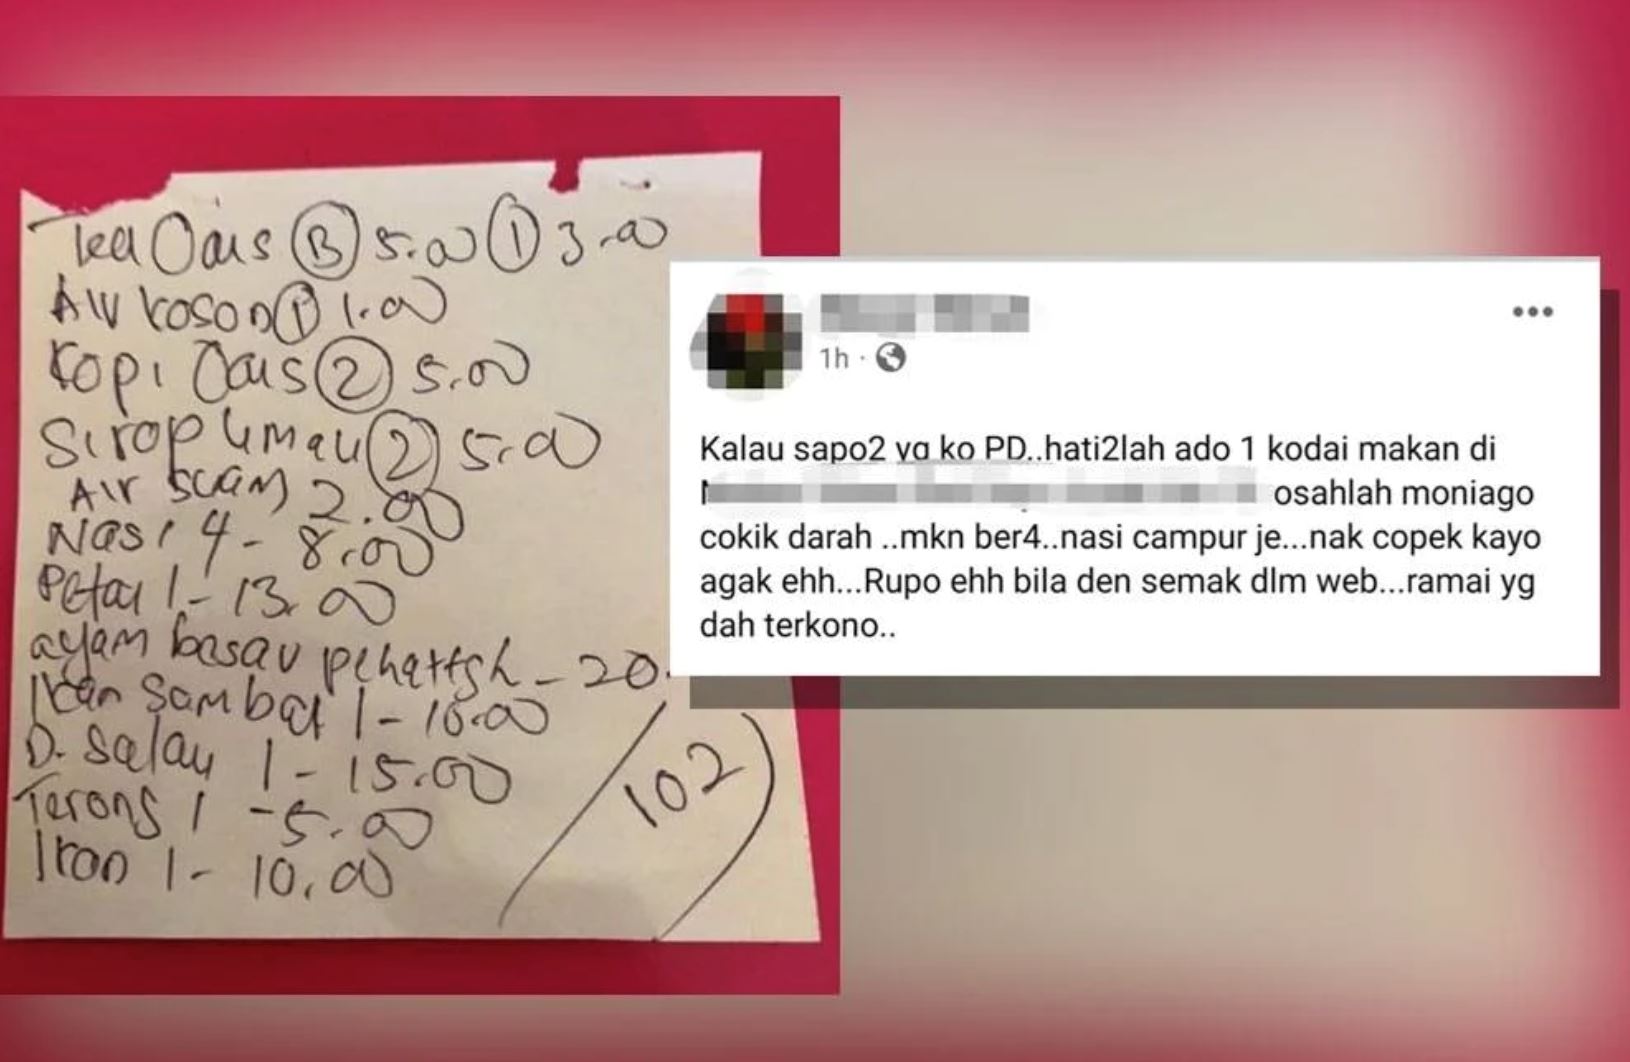 Tea Oais (B) 5.00 (1) 3.00
Air Kosong (1) 1.00
Kopi Oais (2) 5.00
Sirop Limau (2) 5.00
Air scam 2.00
Nasi 4 - 8.00
Petai 1 - 13.00
ayam besar - 20.
Ikan Sambal 1 - 10.00
D. Salay 1 - 15.00
Terong 1 - 5.00
Ikan 1 - 10.00
102
1h ·
Kalau sapo2 yg ko PD..hati2lah ado 1 kodai makan di
osahlah moniago
cokik darah ..mkn ber4..nasi campur je...nak copek kayo
agak ehh...Rupo ehh bila den semak dlm web...ramai yg
dah terkono..